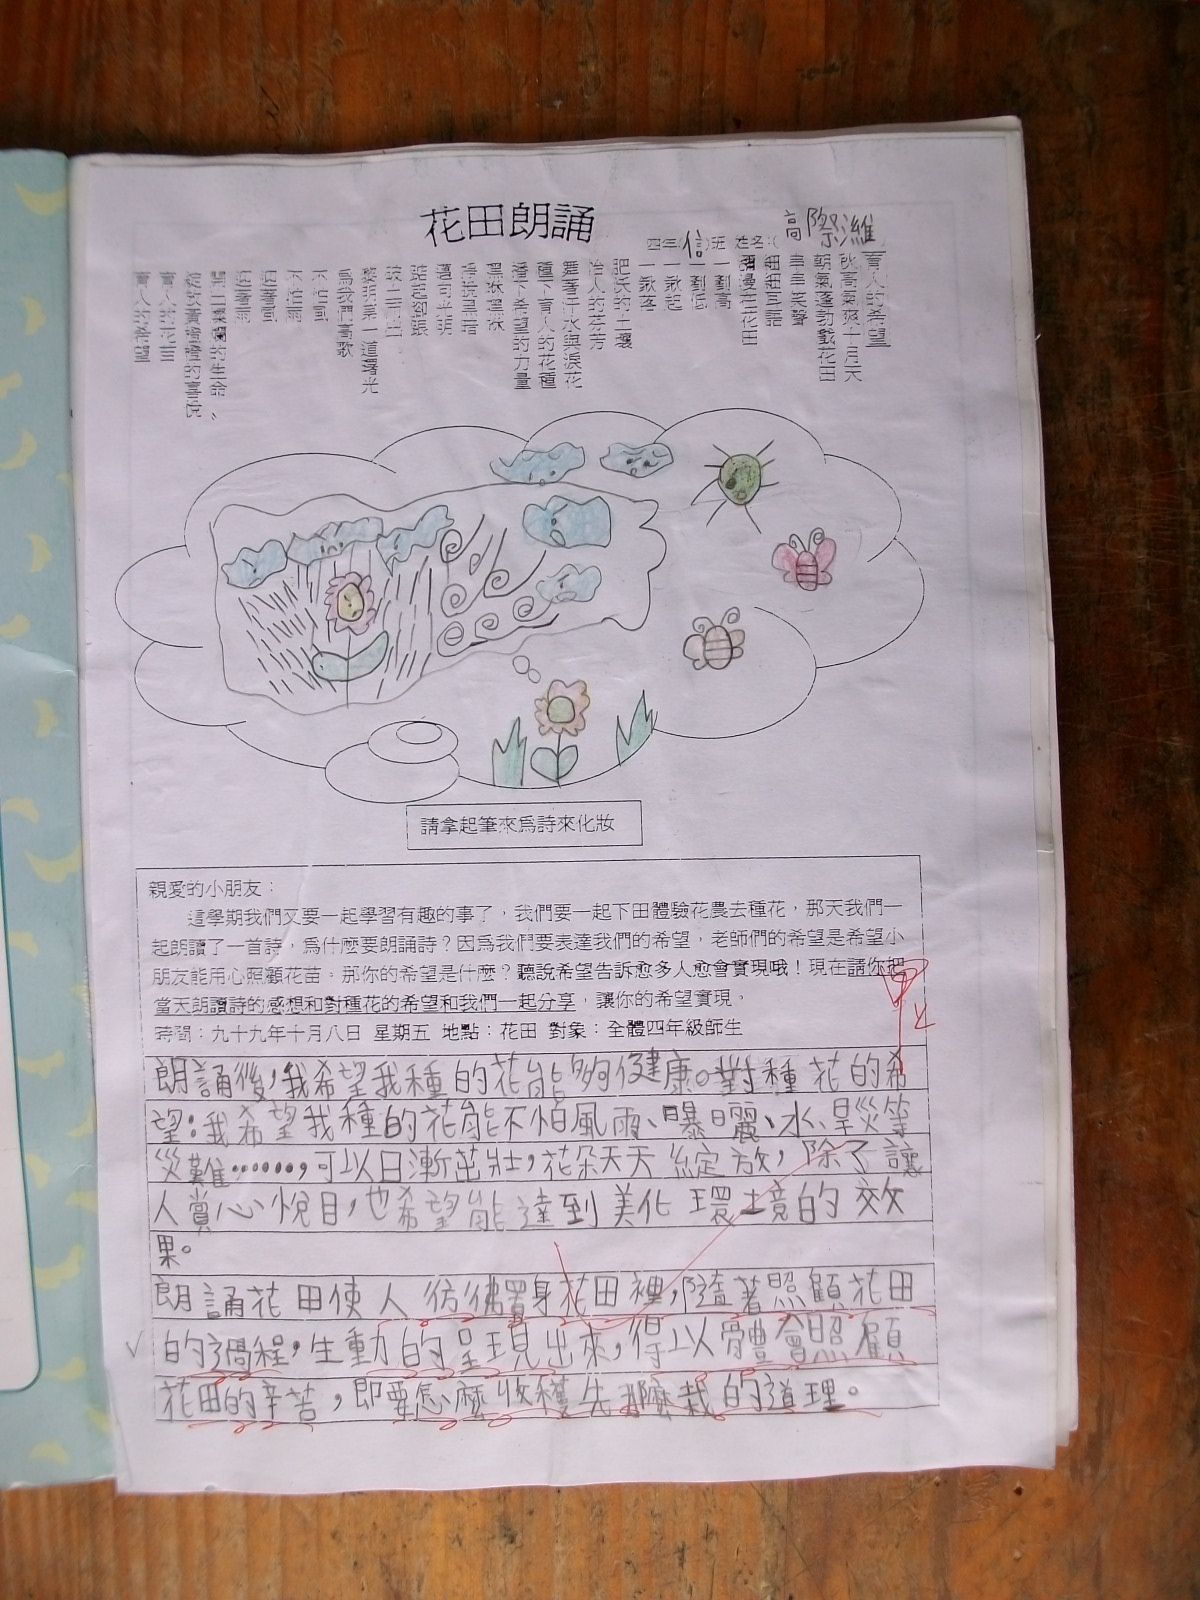 花田朗誦
四年(信)班 姓名:(高際濰)
育人的希望
秋高氣爽十月天
朝氣蓬勃戲花田
串串笑聲
細細耳語
瀰漫在花田
一劃高
一劃低
一鍬起
一鍬落
肥沃的土壤
怡人的芬芳
舞著汗水與淚花
種下育人的花種
播下希望的力量
黑咻黑咻
掙脫黑暗
邁向光明
踮起腳跟
破土而出
黎明第一道曙光
為我們高歌
不怕風
不怕雨
迎著風
迎著雨
開出燦爛的生命、
育人的花苗
育人的希望
請拿起筆來為詩來化妝
親愛的小朋友：
這學期我們又要一起學習有趣的事了，我們要一起下田體驗花農去種花，那天我們一
起朗讀了一首詩，為什麼要朗誦詩？因為我們要表達我們的希望，老師們的希望是希望小
朋友能用心照顧花苗。那你的希望是什麼？聽說希望告訴愈多人愈會實現哦！現在請你把
當天朗讀詩的感想和對種花的希望和我們一起分享，讓你的希望實現。
時間：九十九年十月八日 星期五 地點：花田 對象：全體四年級師生
朗誦後，我希望我種的花能夠健康。對種花的希
望：我希望我種的花能不怕風雨、曝曬、水、旱災等
災難……，可以日漸茁壯，花朵天天綻放，除了讓
人賞心悅目，也希望能達到美化環境的效
果。
朗誦花田使人彷彿置身花田裡，隨著照顧花田
的過程，生動的呈現出來，得以體會照顧
花田的辛苦，即要怎麼收穫先那麼栽的道理。